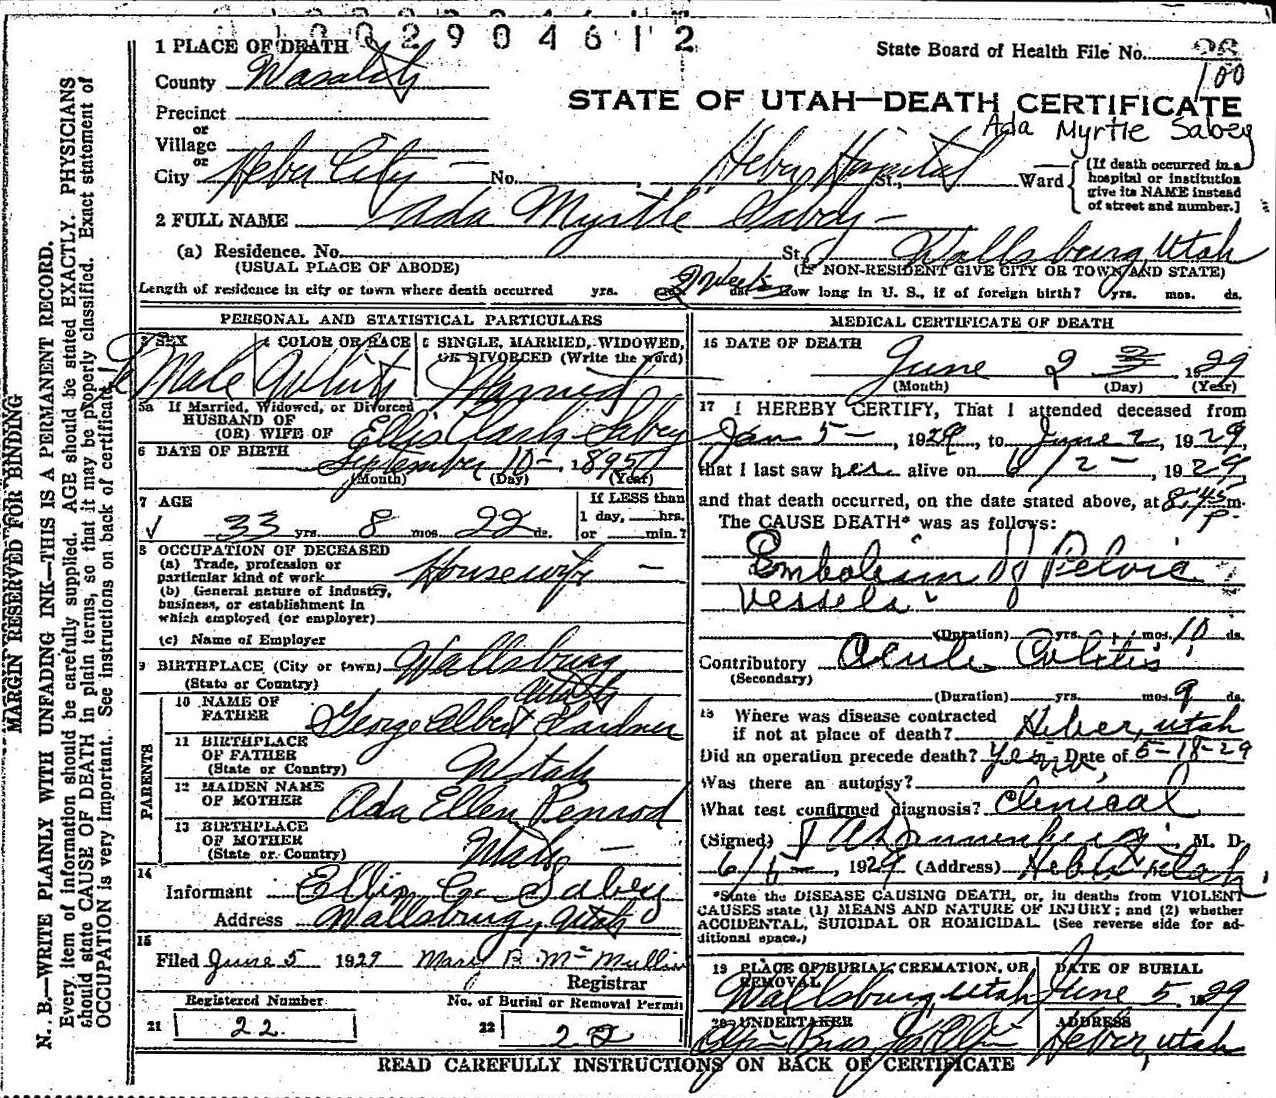 1002904612
1 PLACE OF DEATH
State Board of Health File No. 26
100
County Wasatch
STATE OF UTAH—DEATH CERTIFICATE
Ada Myrtle Sabey
Precinct
or
Village
or
City Heber City — No. , Heber Hospital St., — Ward
[If death occurred in a hospital or institution give its NAME instead of street and number.]
2 FULL NAME Ada Myrtle Sabey —
(a) Residence. No. St. Wallsburg, Utah
(USUAL PLACE OF ABODE) (IF NON-RESIDENT GIVE CITY OR TOWN AND STATE)
Length of residence in city or town where death occurred yrs. 2 Weeks How long in U. S., if of foreign birth? yrs. mos. ds.
PERSONAL AND STATISTICAL PARTICULARS
3 SEX 4 COLOR OR RACE 5 SINGLE, MARRIED, WIDOWED, OR DIVORCED (Write the word)
Fe Male White Married
5a If Married, Widowed, or Divorced
HUSBAND OF
(OR) WIFE OF Ellis Clark Sabey
6 DATE OF BIRTH September 10 — , 1895
(Month) (Day) (Year)
7 AGE If LESS than
√ 33 yrs. 8 mos. 22 ds. 1 day, hrs.
or min.?
8 OCCUPATION OF DECEASED
(a) Trade, profession or
particular kind of work Housewife —
(b) General nature of industry,
business, or establishment in
which employed (or employer)
(c) Name of Employer
9 BIRTHPLACE (City or town) Wallsburg
(State or Country) Utah
PARENTS
10 NAME OF
FATHER George Albert Gardner
11 BIRTHPLACE
OF FATHER
(State or Country) Utah
12 MAIDEN NAME
OF MOTHER Ada Ellen Penrod
13 BIRTHPLACE
OF MOTHER
(State or Country) Utah —
14
Informant Ellis C. Sabey
Address Wallsburg, Utah
15
Filed June 5 1929 Mary B. McMullin
Registrar
Registered Number No. of Burial or Removal Permit
21 22. 22 22
MEDICAL CERTIFICATE OF DEATH
16 DATE OF DEATH
June 2 3 1929
(Month) (Day) (Year)
17 I HEREBY CERTIFY, That I attended deceased from
Jan 5 — , 1929, to June 2, 1929,
that I last saw her alive on 6/2 — , 1929
and that death occurred, on the date stated above, at 8:45 P. m.
The CAUSE DEATH* was as follows:
Embolism of Pelvic
Vessels.
(Duration) yrs. mos. 10 ds.
Contributory Acute Colitis
(Secondary)
(Duration) yrs. mos. 9 ds.
18 Where was disease contracted
if not at place of death? Heber, Utah
Did an operation precede death? Yes Date of 5-18-29
Was there an autopsy? no,
What test confirmed diagnosis? Clinical
(Signed) M. D.
6/6 — , 1929 (Address) Heber Utah,
*State the DISEASE CAUSING DEATH, or, in deaths from VIOLENT
CAUSES state (1) MEANS AND NATURE OF INJURY; and (2) whether
ACCIDENTAL, SUICIDAL OR HOMICIDAL. (See reverse side for ad-
ditional space.)
19 PLACE OF BURIAL, CREMATION, OR REMOVAL DATE OF BURIAL
Wallsburg, Utah June 5 1929
20 UNDERTAKER ADDRESS
Olpin Heber, Utah
READ CAREFULLY INSTRUCTIONS ON BACK OF CERTIFICATE
MARGIN RESERVED FOR BINDING
N. B.—WRITE PLAINLY WITH UNFADING INK—THIS IS A PERMANENT RECORD.
Every item of information should be carefully supplied. AGE should be stated EXACTLY. PHYSICIANS
should state CAUSE OF DEATH in plain terms, so that it may be properly classified. Exact statement of
OCCUPATION is very important. See instructions on back of certificate.